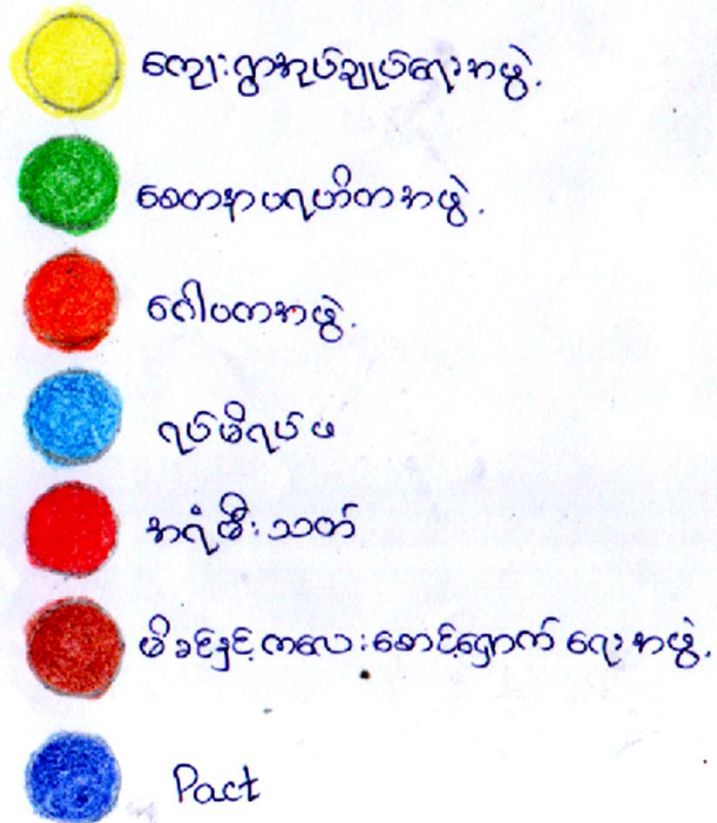 ကျေးရွာအုပ်ချုပ်ရေးအဖွဲ့
စေတနာပရဟိတအဖွဲ့
ဂေါပကအဖွဲ့
ရပ်မိရပ်ဖ
အရံမီးသတ်
မိခင်နှင့်ကလေးစောင့်ရှောက်ရေးအဖွဲ့
Pact